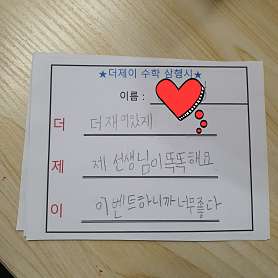 ★더제이 수학 삼행시★
이름 :
더 더재미있제
제 제 선생님이 똑똑해요
이 이벤트하니까 너무좋다